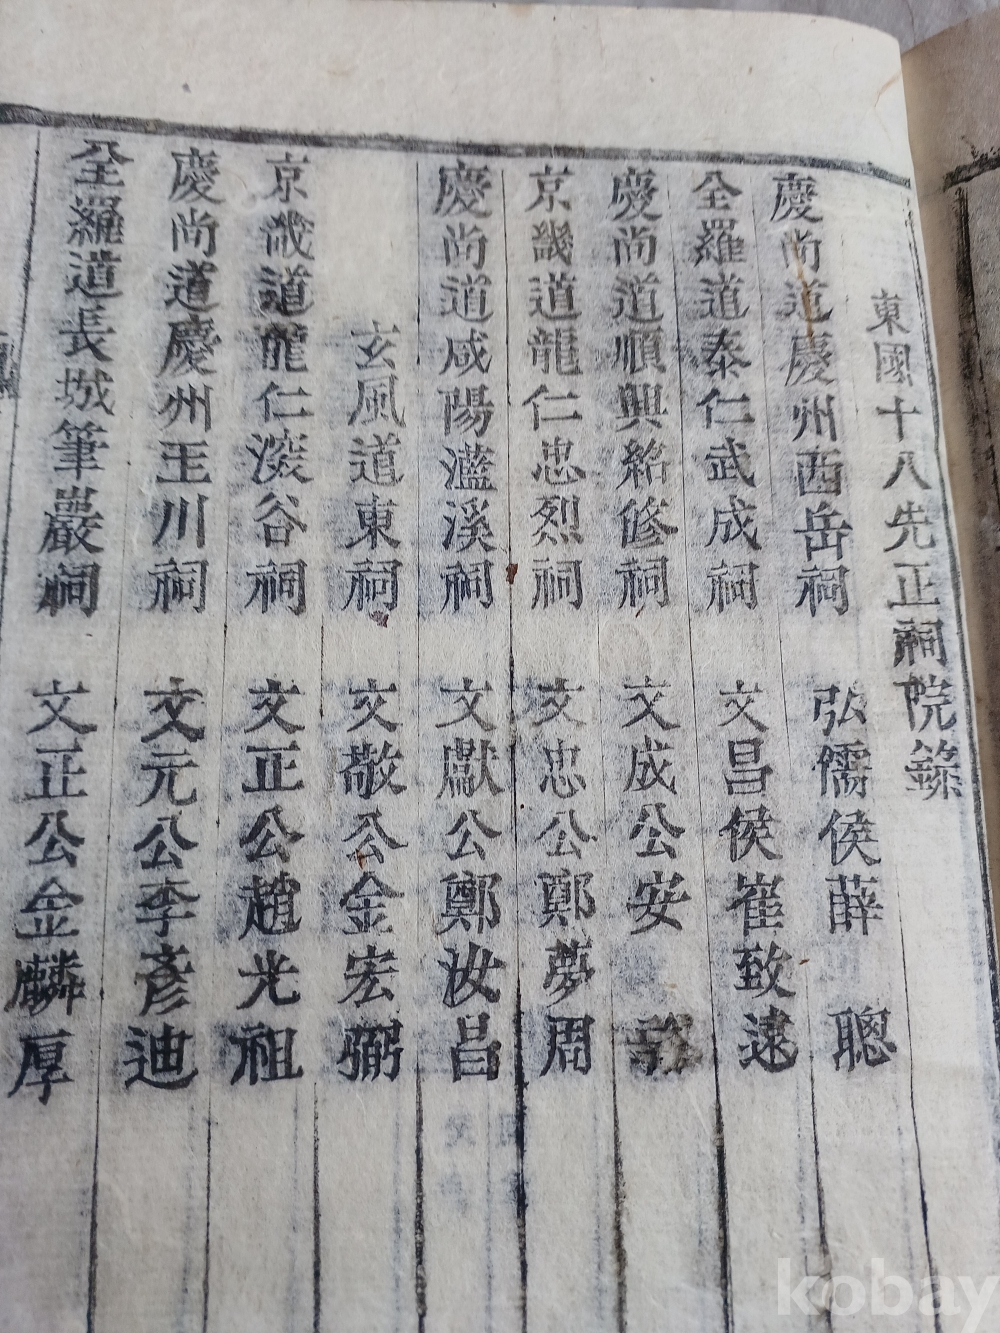 東國十八先正祠院錄
慶尚道慶州西岳祠 弘儒侯薛聰
全羅道泰仁武成祠 文昌侯崔致遠
慶尚道順興紹修祠 文成公安
京畿道龍仁忠烈祠 文忠公鄭夢周
慶尚道咸陽灆溪祠 文獻公鄭汝昌
玄風道東祠 文敬公金宏弼
京畿道龍仁深谷祠 文正公趙光祖
慶尚道慶州玉川祠 文元公李彥迪
全羅道長城筆巖祠 文正公金麟厚
kobay